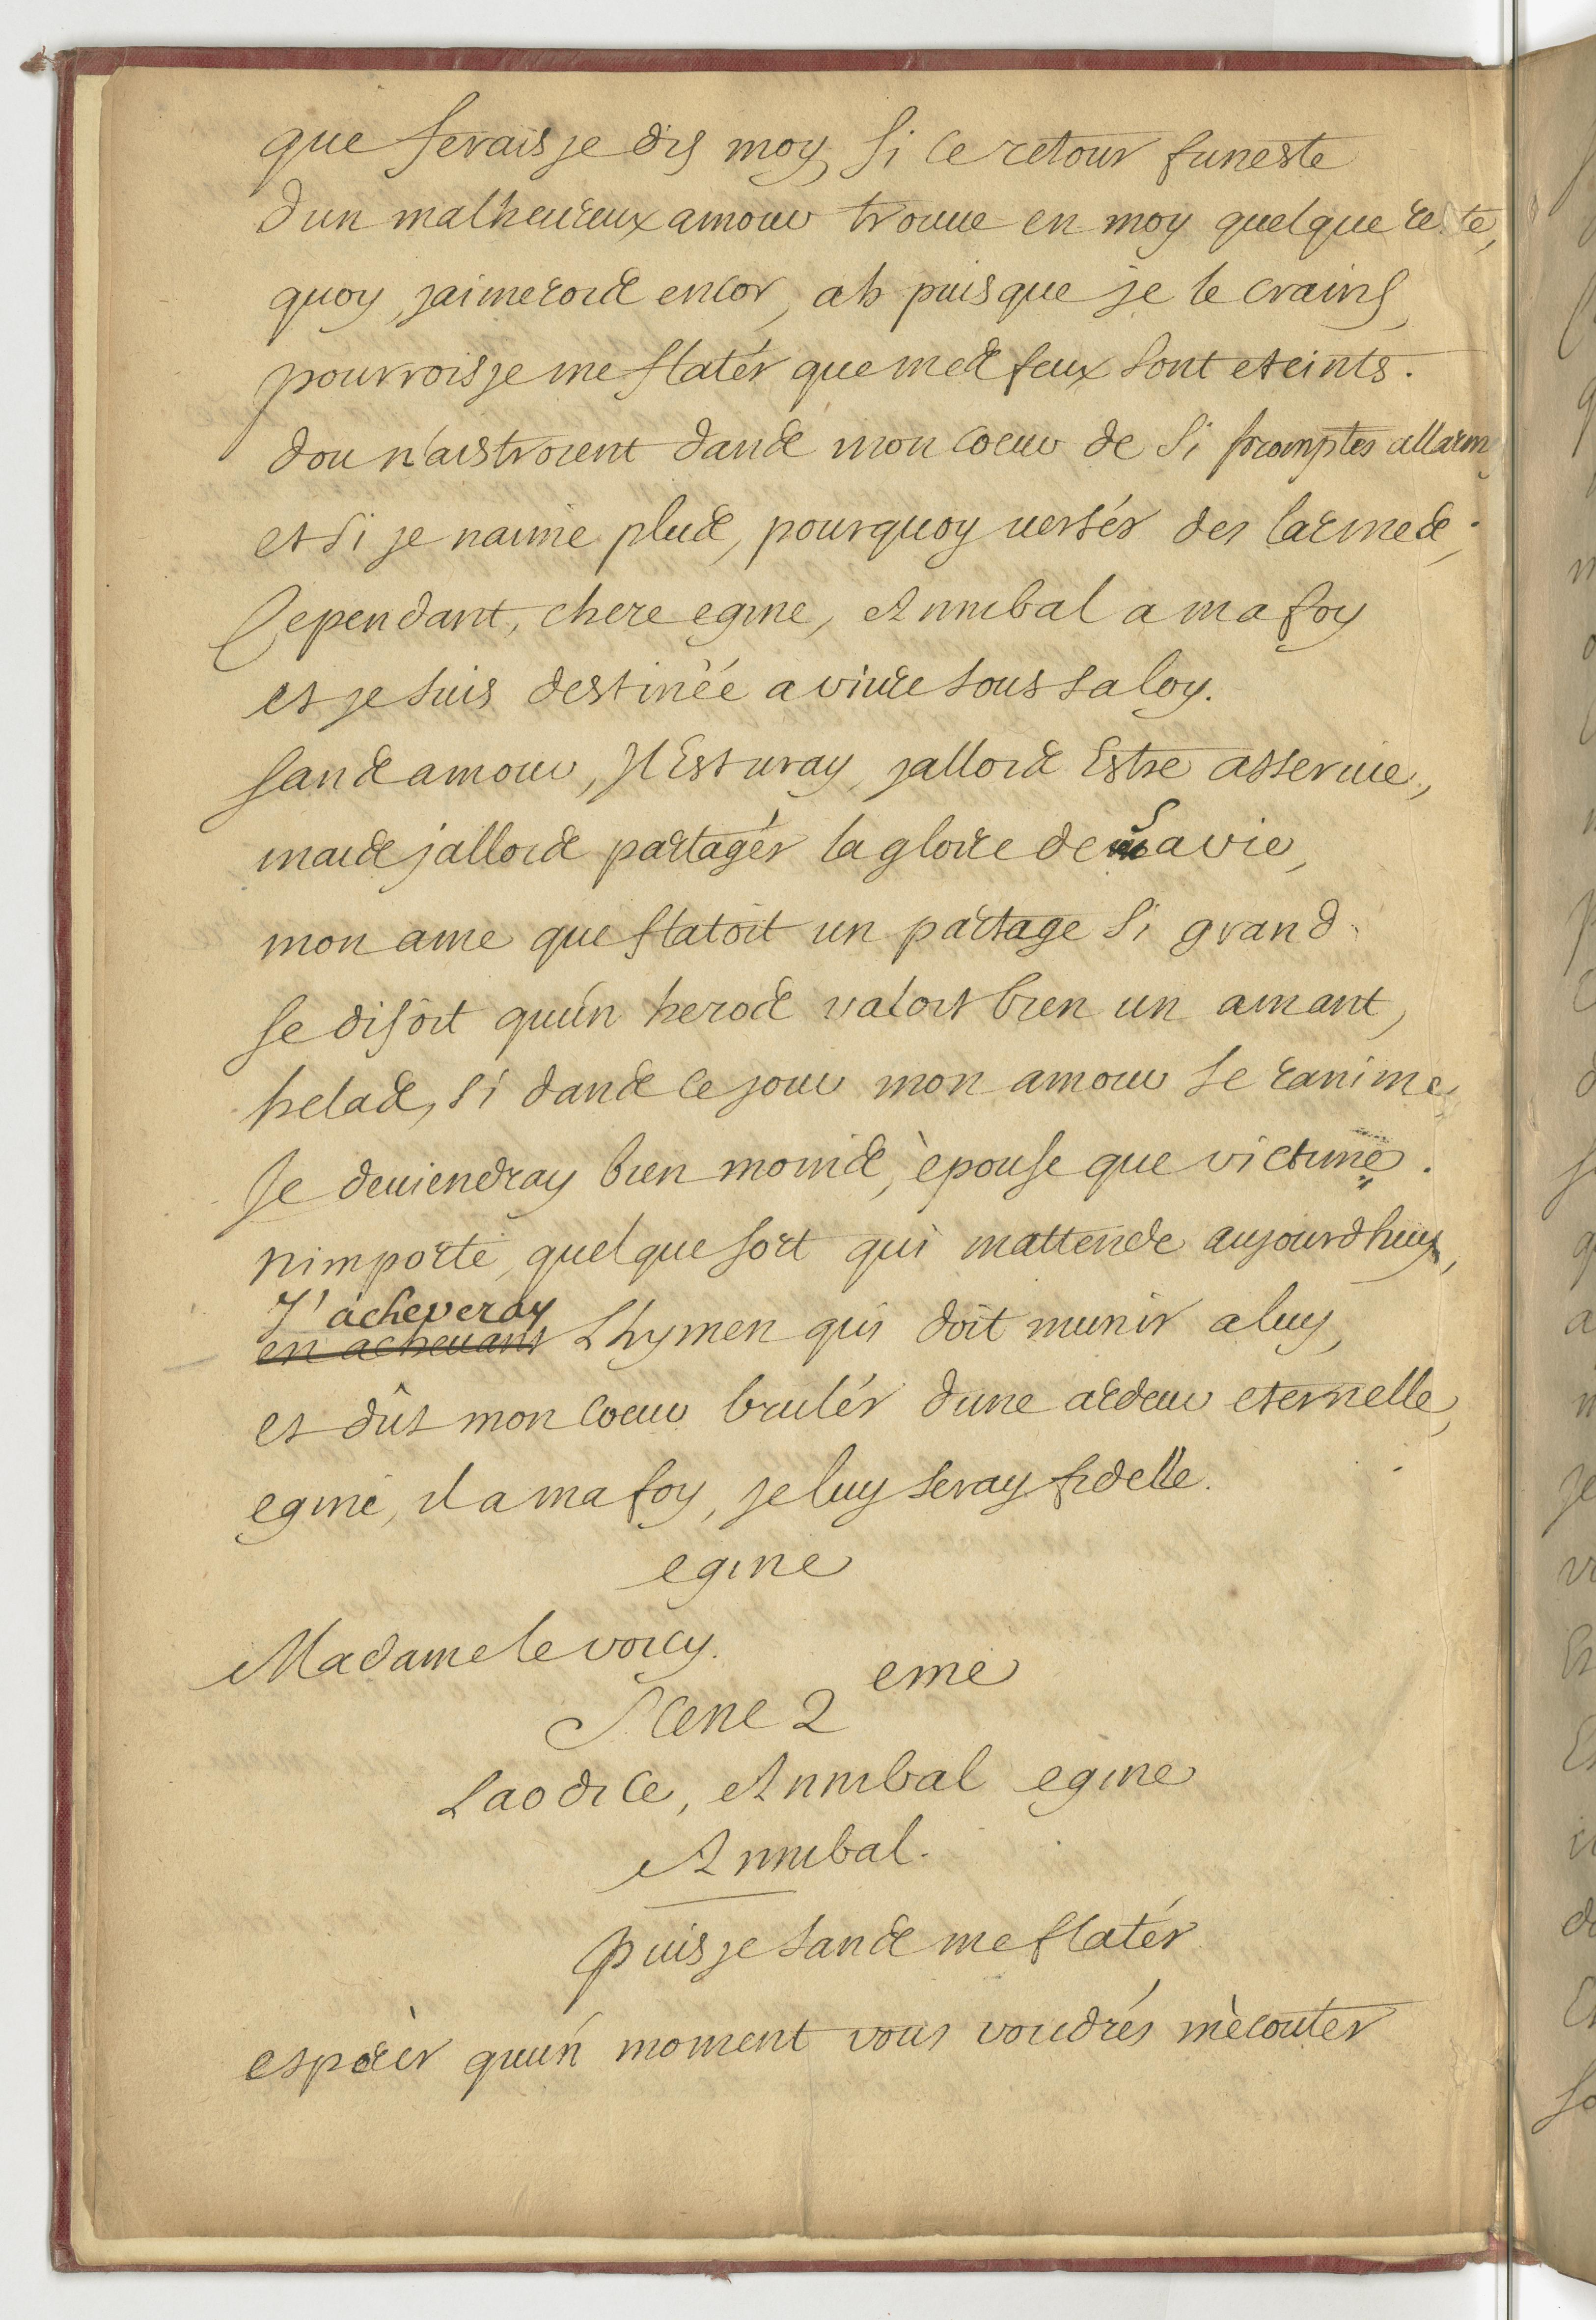 que ferais je dis moy, si ce retour funeste
dun malheureux amour trouue en moy quelque reste,
quoy, jaimerois encor, ah puisque je le crains,
pourrois je me flatér que mes feux sont eteints.
dou n'aistroient dans mon coeur de si promptes allarm
et si je naime plus, pourquoy versér des larmes,
Cependant, chere egine, Annibal a ma foy
et je suis destinée a viure sous sa loy.
sans amour, Il Est vray, jallois Estre asseruie,
mais j'allois partagér la gloire de sa vie,
mon ame que flatoit un partage si grand
se disoit qu'un heros valoit bien un amant,
helas, si dans ce jour mon amour se ranime,
Je deuiendray bien moins, èpouse que victime.
nimporte, quelque sort qui mattende aujourdhuy,
J'acheveray
en acheuant Lhymen qui doit munir a luy,
et dût mon coeur brulér dune ardeur eternelle,
egine, il a ma foy, je luy seray fidelle.
egine
Madame le voicy.
Scene 2 eme
Laodice, Annibal egine
Annibal.
puis je sans me flatér
espérèr qu'un moment vous voudrés m'ècouter